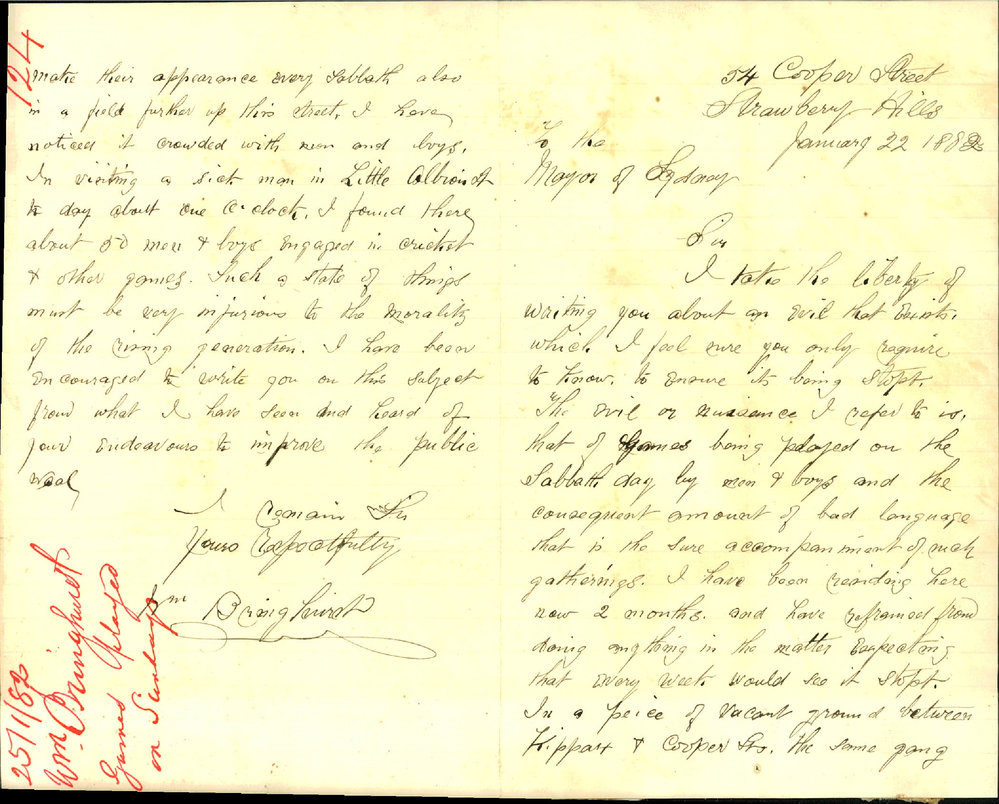 54 Cooper Street
Strawbery Hills
January 22 1882
To the
Mayor of Sydney
Sir
I take the liberty of
writing you about an evil that exists.
which. I feel sure you only require
to know. to ensure its being stopt.
The evil or nuisance I refer to is.
that of games being played on the
Sabbath day by men & boys and the
consequent amount of bad language
that is the sure accompaniment of such
gatherings. I have been residing here
now 2 months. and have refrained from
doing anything in the matter expecting
that every week would see it stopt.
In a peice of vacant ground between
Kippax & Cooper Sts. the same gang
make their appearance every Sabbath also
in a field further up this street, I have
noticed it crowded with men and boys.
In visiting a sick man in Little Albion St
to day about one O'clock. I found there
about 50 men & boys engaged in cricket
& other games. Such a state of things
must be very injurious to the morality
of the rising generation. I have been
encouraged to write you on this subject
from what I have seen and heard of
your endeavours to improve the public
weal
I remain Sir
Yours Respectfully
Wm Bringhurst
124
25/1/82
Wm Bringhurst
Games Played
on Sundays